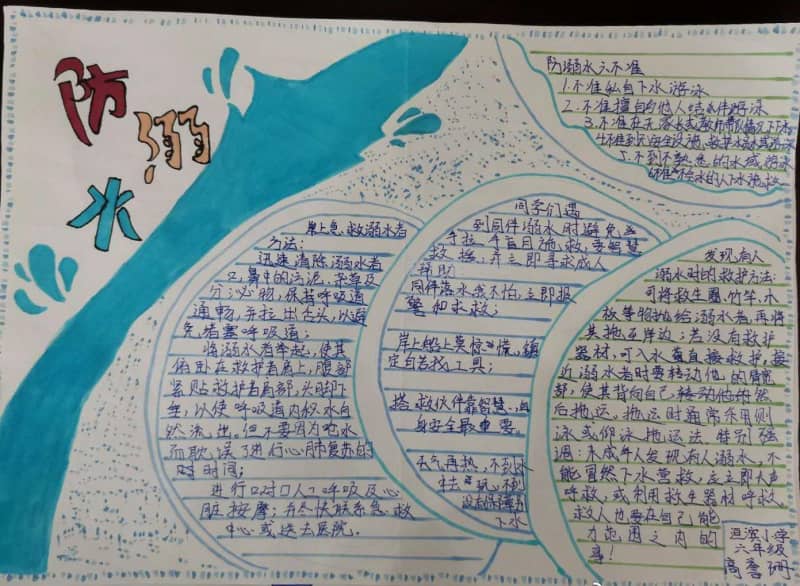 防溺水
防溺水六不准
1.不准私自下水游泳
2.不准擅自与他人结伴游泳
3.不准在无家长或教师带领情况下下水
5.不到不熟悉的水域游泳
岸上急救溺水者
方法:
迅速清除溺水者
口、鼻中的污泥、杂草及
分泌物,保持呼吸道
通畅,并拉出舌头,以避
免堵塞呼吸道;
将溺水者举起,使其
俯卧在救护者肩上,腹部
紧贴救护者肩部,头脚下
垂,以使呼吸道内积水自
然流出,但不要因为呛水
而耽误了进行心肺复苏的
时间;
进行口对口人工呼吸及心
脏按摩;并尽快联系急救
中心或送去医院.
同学们遇
到同伴溺水时避免
手拉手盲目施救,要智慧
救援,并立即寻求成人
帮助.
同伴落水我不怕,立即报
警和求救;
岸上的上莫惊慌,镇
定自若找工具;
搭救伙伴靠智慧,自
身安全最重要.
天气再热,不到水
下水
发现有人
溺水时的救护方法:
可将救生圈、竹竿、木
板等物抛给溺水者,再将
其拖至岸边;若没有救护
器材,可入水直接救护,接
近溺水者时要转动他的髋
部,使其背向自己,转动他然
后拖运,拖运时通常采用侧
泳或仰泳拖运法.特别强
调:未成年人发现有人溺水,不
能冒然下水营救,应立即大声
呼救,或利用救生器材呼救,
救人也要在自己能
力范围之内的
事!
小学
六年级